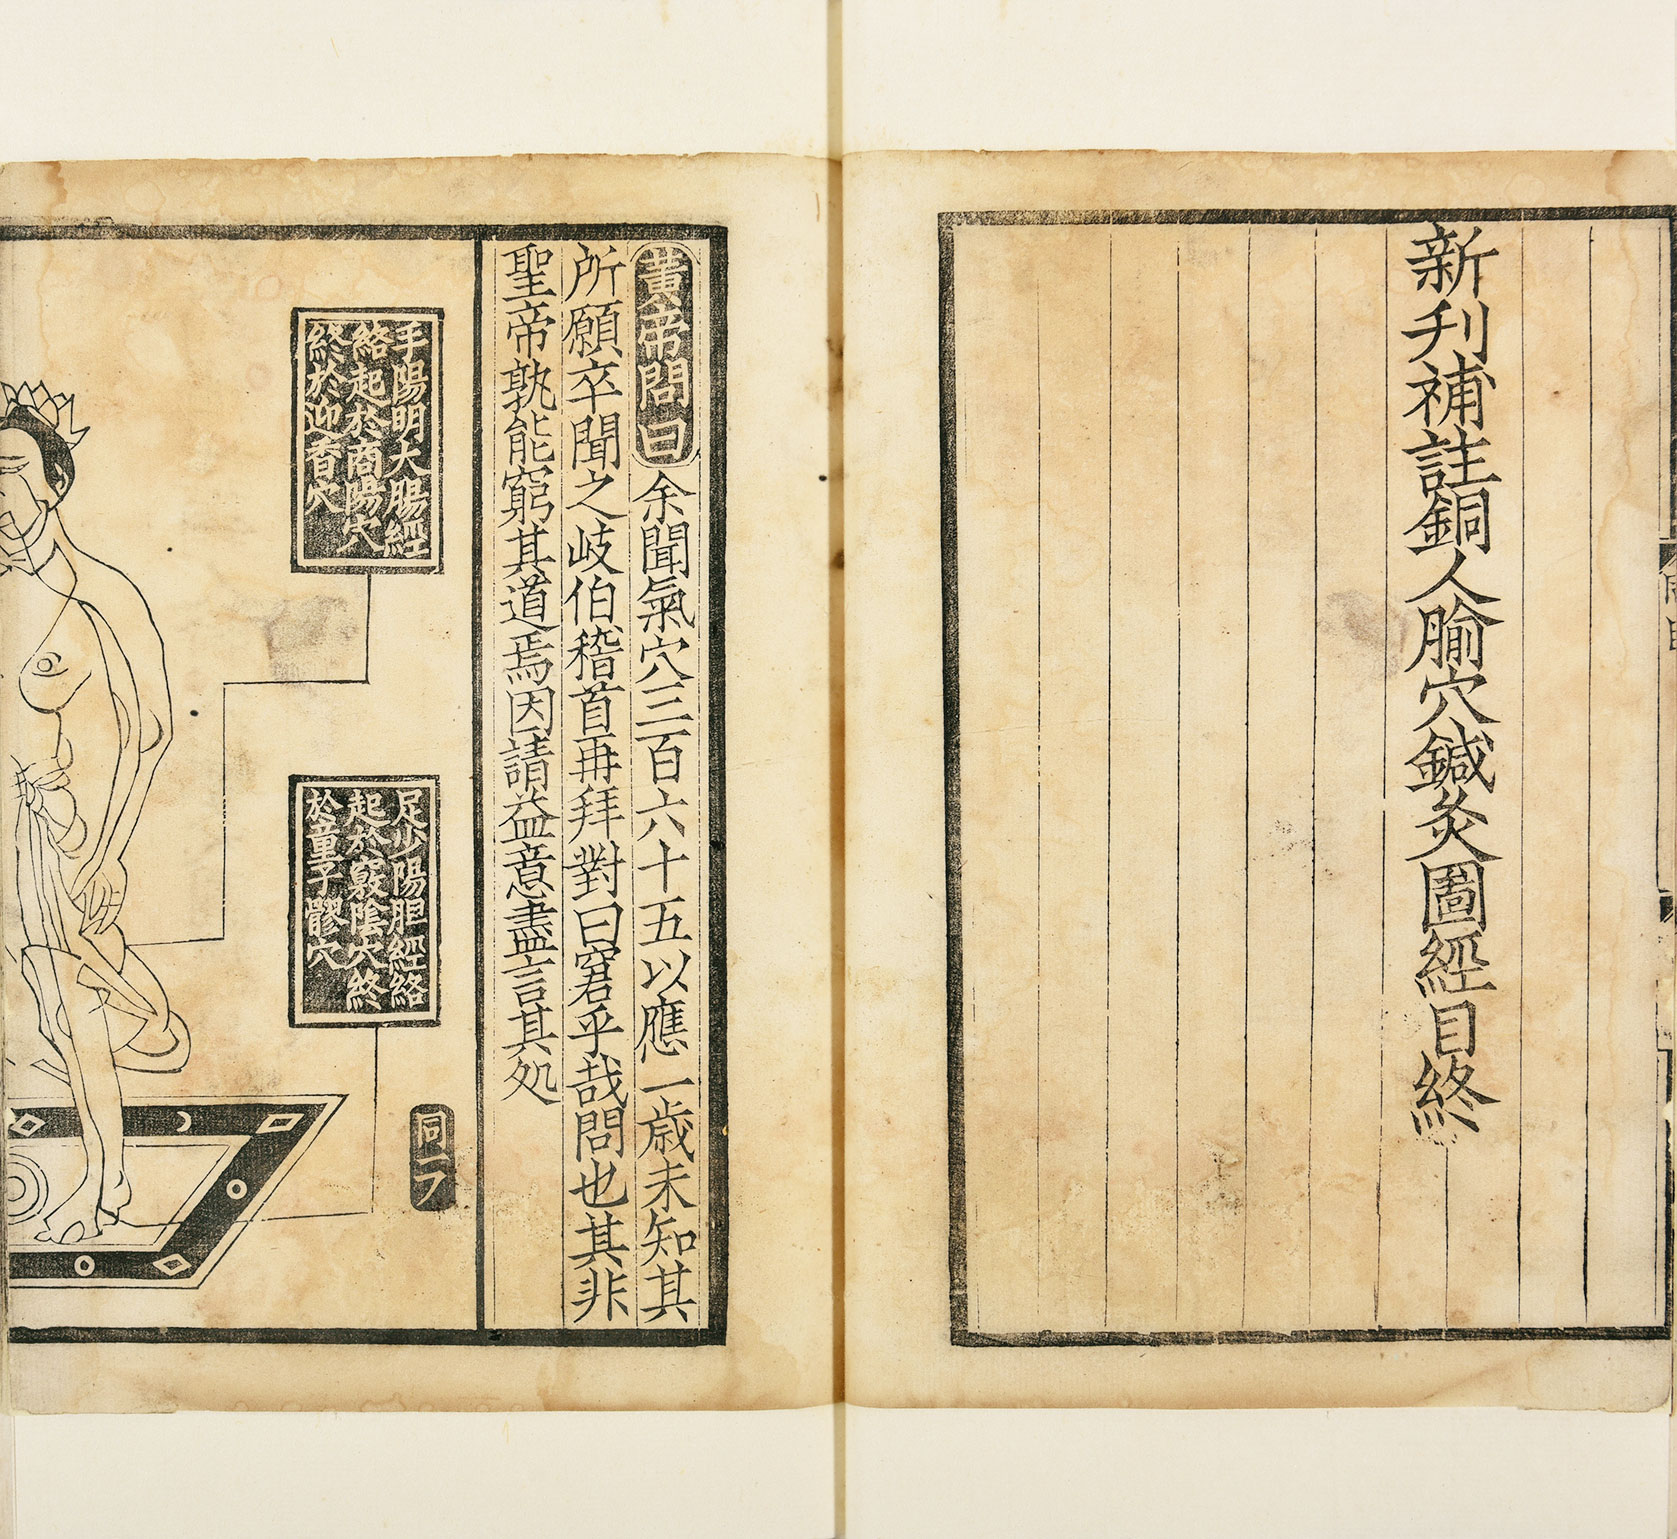 新刋補註銅人腧穴鍼灸圖經目終
黃帝問曰余聞氣穴三百六十五以應一歲未知其
所願卒聞之岐伯稽首再拜對曰窘乎哉問也其非
聖帝孰能窮其道焉因請益意盡言其処
手陽明大腸經
絡起於商陽穴
終於迎香穴
足少陽胆經絡
起於竅陰穴終
於童子髎穴
同一